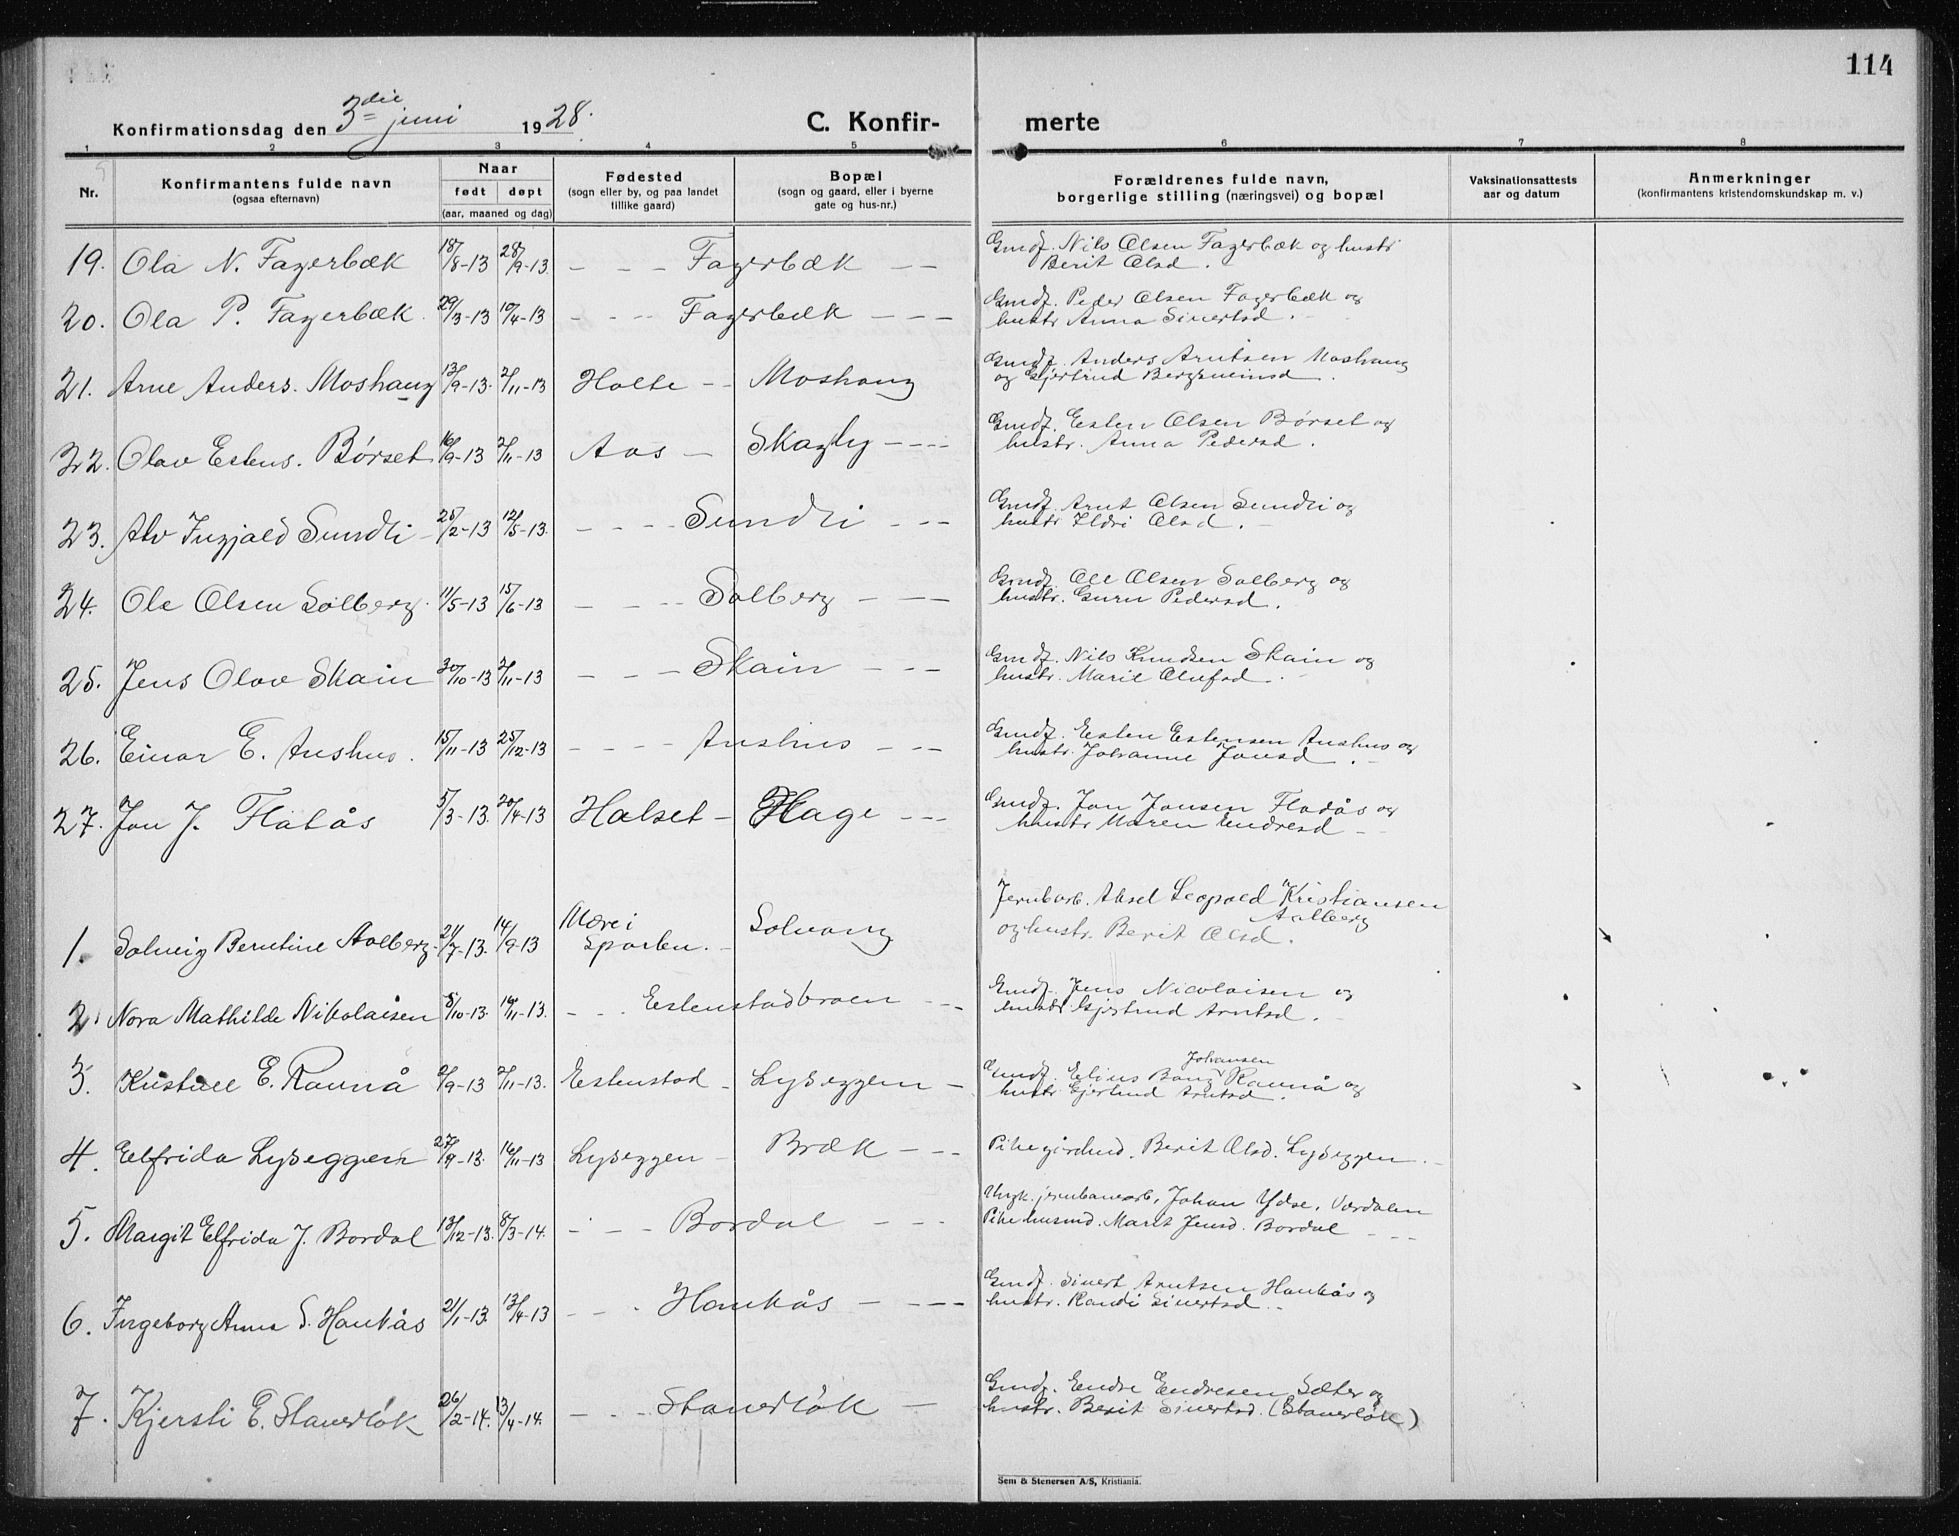 114
Konfirmationsdag den 3die juni 1928.
C. Konfir-merte
1 2 3 4 5 6 7 8
Nr.
Konfirmantens fulde navn
(ogsaa efternavn)
Naar
født døpt
(aar, maaned og dag)
Fødested
(sogn eller by, og paa landet
tillike gaard)
Bopæl
(sogn og gaard, eller i byerne
gate og hus-nr.)
Forældrenes fulde navn,
borgerlige stilling (næringsvei) og bopæl
Vaksinationsattests
aar og datum
Anmerkninger
(konfirmantens kristendomskundskap m. v.)
19. Ola N. Fagerbæk 18/8-13 28/9-13. - - - Fagerbæk - - Gmdf. Nils Olsen Fagerbæk og hustr
Berit Olsd.
20. Ola P. Fagerbæk. 29/3-13 10/4-13 - - - - Fagerbæk - - - Gmdf. Peder Olsen Fagerbæk og
hustr Anna Sivertsd.
21. Arne Anders. Moshaug 13/9-13. 2/11-13 Holte - - Moshaug Gmdf. Anders Arntsen Moshaug
og Gjertrud Bergsveinsd.
22. Olav Estens. Børset 16/9-13 2/11-13 Aas - Skagly - - - - Gmdf. Esten Olsen Børset og
hustr. Anna Pedersd.
23. Alv Ingjald Sundli - 25/2-13 12/5-13. - - - - Sundli - - - Gmdf. Arnt Olsen Sundli og
hustr Ildri Olsd. -
24. Ole Olsen Solberg. 11/5-13 15/6-13 - - - - Solberg - - - Gmdf. Ole Olsen Solberg og
hustr. Guru Pedersd.
25. Jens Olav Skain 30/10-13 2/11-13 - - - - Skain - - - Gmdf. Nils Knudsen Skain og
hustr. Marie Olufsd. -
26. Einar E. Aushus. 15/11-13 25/12-13 - - - - Aushus - - - Gmdf. Esten Estensen Aushus og
hustr. Johanne Jonsd. -
27. Jon J. Flatås 5/3-13. 20/4-13 Halset - Hage - - - Gmdf. Jon Jonsen Flatås og
hustr Maren Endresd - -
1. Solveig Berntine Aalberg. 21/7-13. 14/9-13 Mære i
Sparbu. - Solvang Jernbarb. Aksel Leopold Kristiansen
Aalberg
og hustr. Berit Olsd.
2. Nora Mathilde Nikolaisen 8/10-13. 16/11-13. - - - Estenstadbroen - - Gmdf. Jens Nicolaisen og
hustr Gjertrud Arntsd.
3. E. Ravnå 2/9-13 2/11-13. Estenstad - Lyseggen - Gmdf. Elius Bang Johansen Ravnå og
hustr Gjertrud Arntsd.
4. Elfrida Lyseggen 27/9-13. 16/11-13 Lyseggen - Bræk - - - Pike Berit Olsd. Lyseggen. -
5. Margit Elfrida J. Bordal 13/12-13. 8/3-14. - - - Bordal - - - Ungk. jernbanearb. Johan Ydse, Værdalen
Pike Marit Jensd. Bordal - - -
6. Ingeborg Anna S. Haukås 21/1-13. 13/4-13 - - - Haukås - - - - Gmdf. Sivert Arntsen Haukås og
hustr. Randi Sivertsd. - -
7. Kjersti E. Staverløk 26/2-14. 13/4-14. - - - Staverløk - Gmdf. Endre Endresen Sæter og
hustr. Berit Sivertsd. (Staverløk)
Sem & Stenersen A/S, Kristiania.